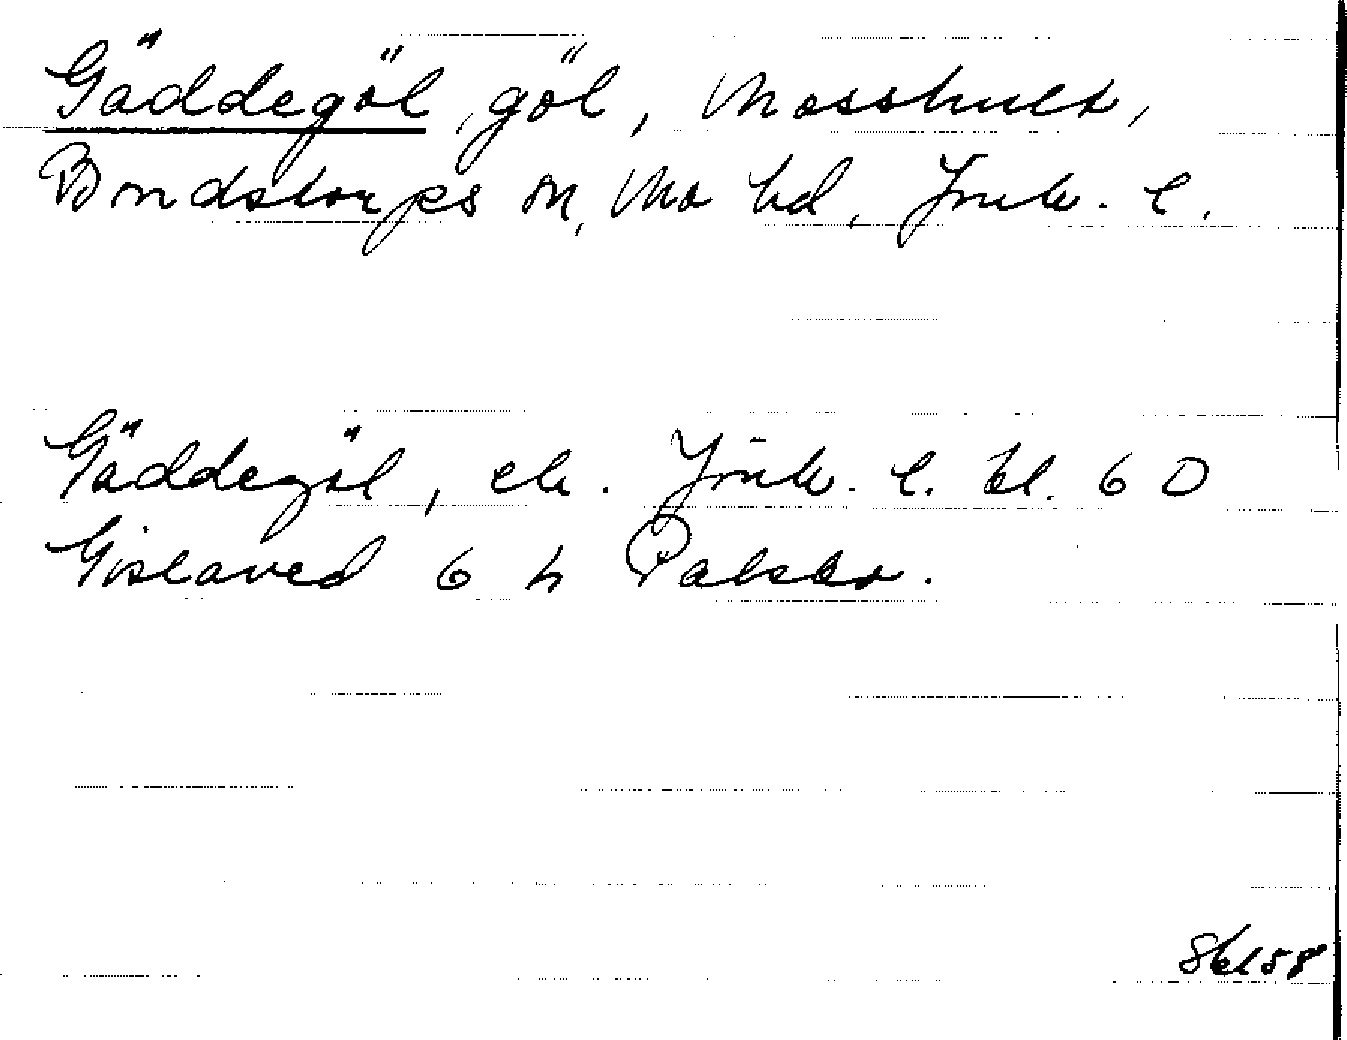 Gäddegöl, göl, Mosshult,
Bondstorps sn, Mo hd, Jönk. l.
Gäddegöl, ek. Jönk. l. bl. 6 D
Gislaved 6 h Palsbo.